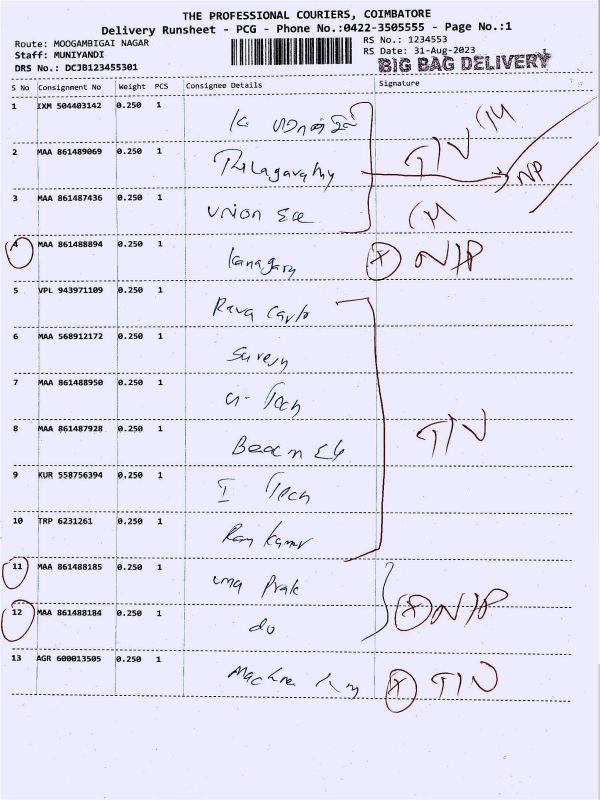 THE PROFESSIONAL COURIERS, COIMBATORE
Delivery Runsheet - PCG - Phone No.:0422-3505555 - Page No.:1
Route: MOOGAMBIGAI NAGAR RS No.: 1234553
Staff: MUNIYANDI RS Date: 31-Aug-2023
DRS No.: DCJB123455301 BIG BAG DELIVERY
S No Consignment No Weight PCS Consignee Details Signature
1 IXM 504403142 0.250 1
2 MAA 861489069 0.250 1 Thilagavathy T/N NP
3 MAA 861487436 0.250 1 Union Ele
4 MAA 861488894 0.250 1 Kanagaraj N/P
5 VPL 943971109 0.250 1
6 MAA 568912172 0.250 1 Suresh
7 MAA 861488950 0.250 1 Tech
8 MAA 861487928 0.250 1 Beacon T/N
9 KUR 558756394 0.250 1 I Tech
10 TRP 6231261 0.250 1 Ram Kumar
11 MAA 861488185 0.250 1 Uma Prak
12 MAA 861488184 0.250 1 do N/P
13 AGR 600013505 0.250 1 T/N